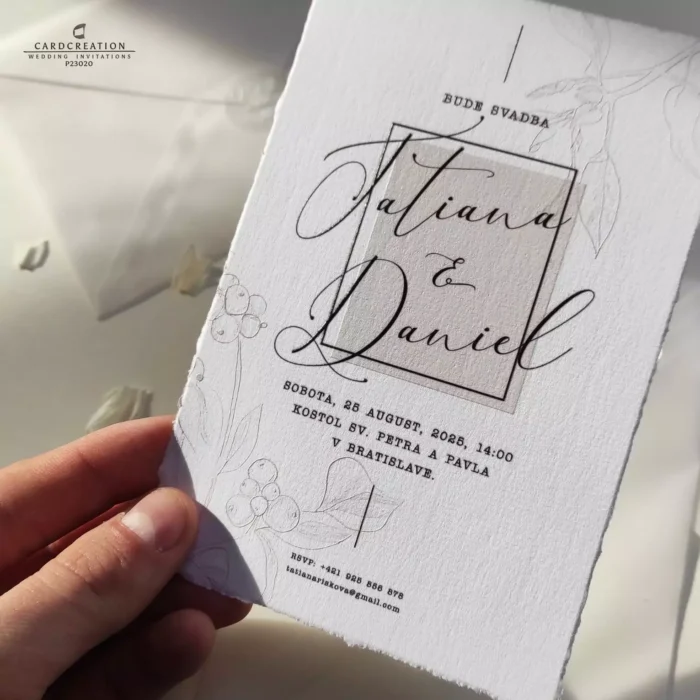 CARDCREATION
WEDDING INVITATIONS
P23020
BUDE SVADBA
Tatiana
&
Daniel
SOBOTA, 25 AUGUST, 2025, 14:00
KOSTOL SV. PETRA A PAVLA
V BRATISLAVE.
RSVP: +421 925 555 575
tatianariskova@gmail.com